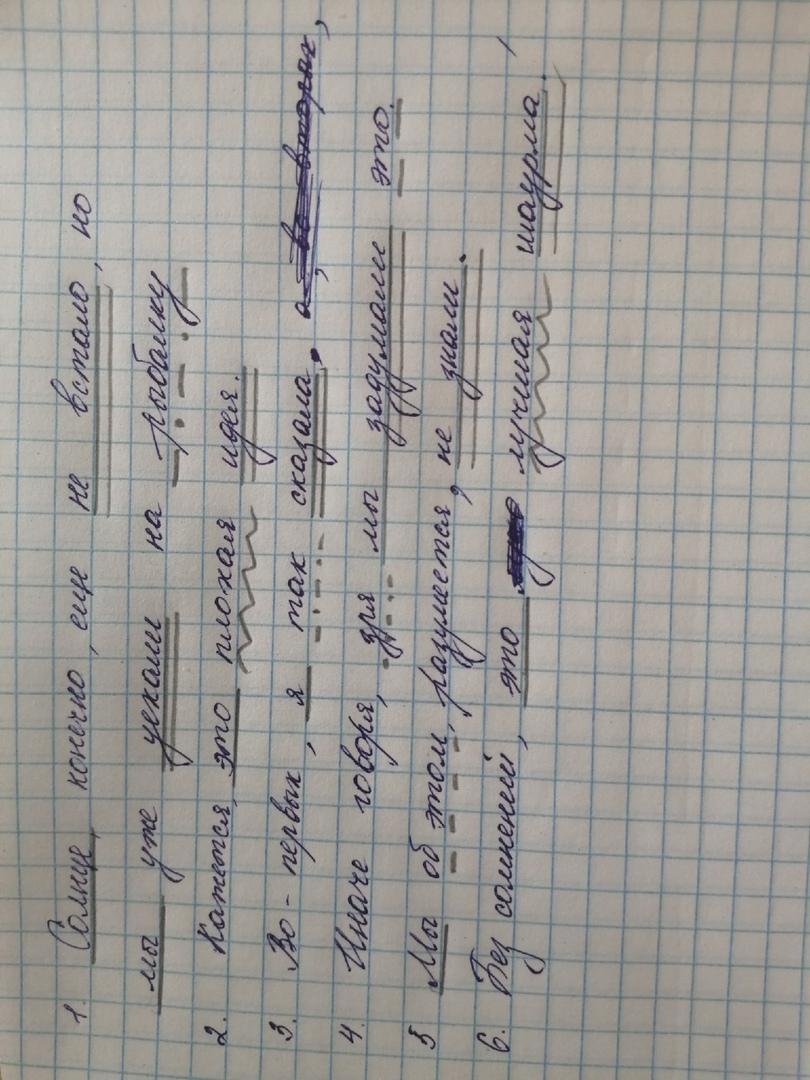 1. Солнце, конечно, еще не встало, но
мы уже уехали на рыбалку
2. Кажется, это плохая идея.
3. Во-первых, я так сказала. а, во-вторых,
4. Иначе говоря, зря мы задумали это.
5 Мы об этом, разумеется, не знали.
6. Без сомнений, это лучшая шаурма.